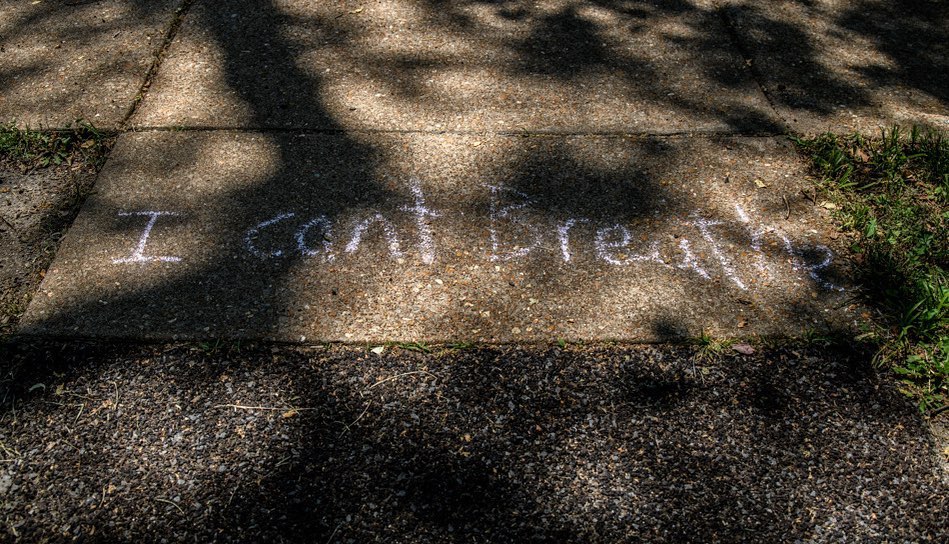 I cant Breathe